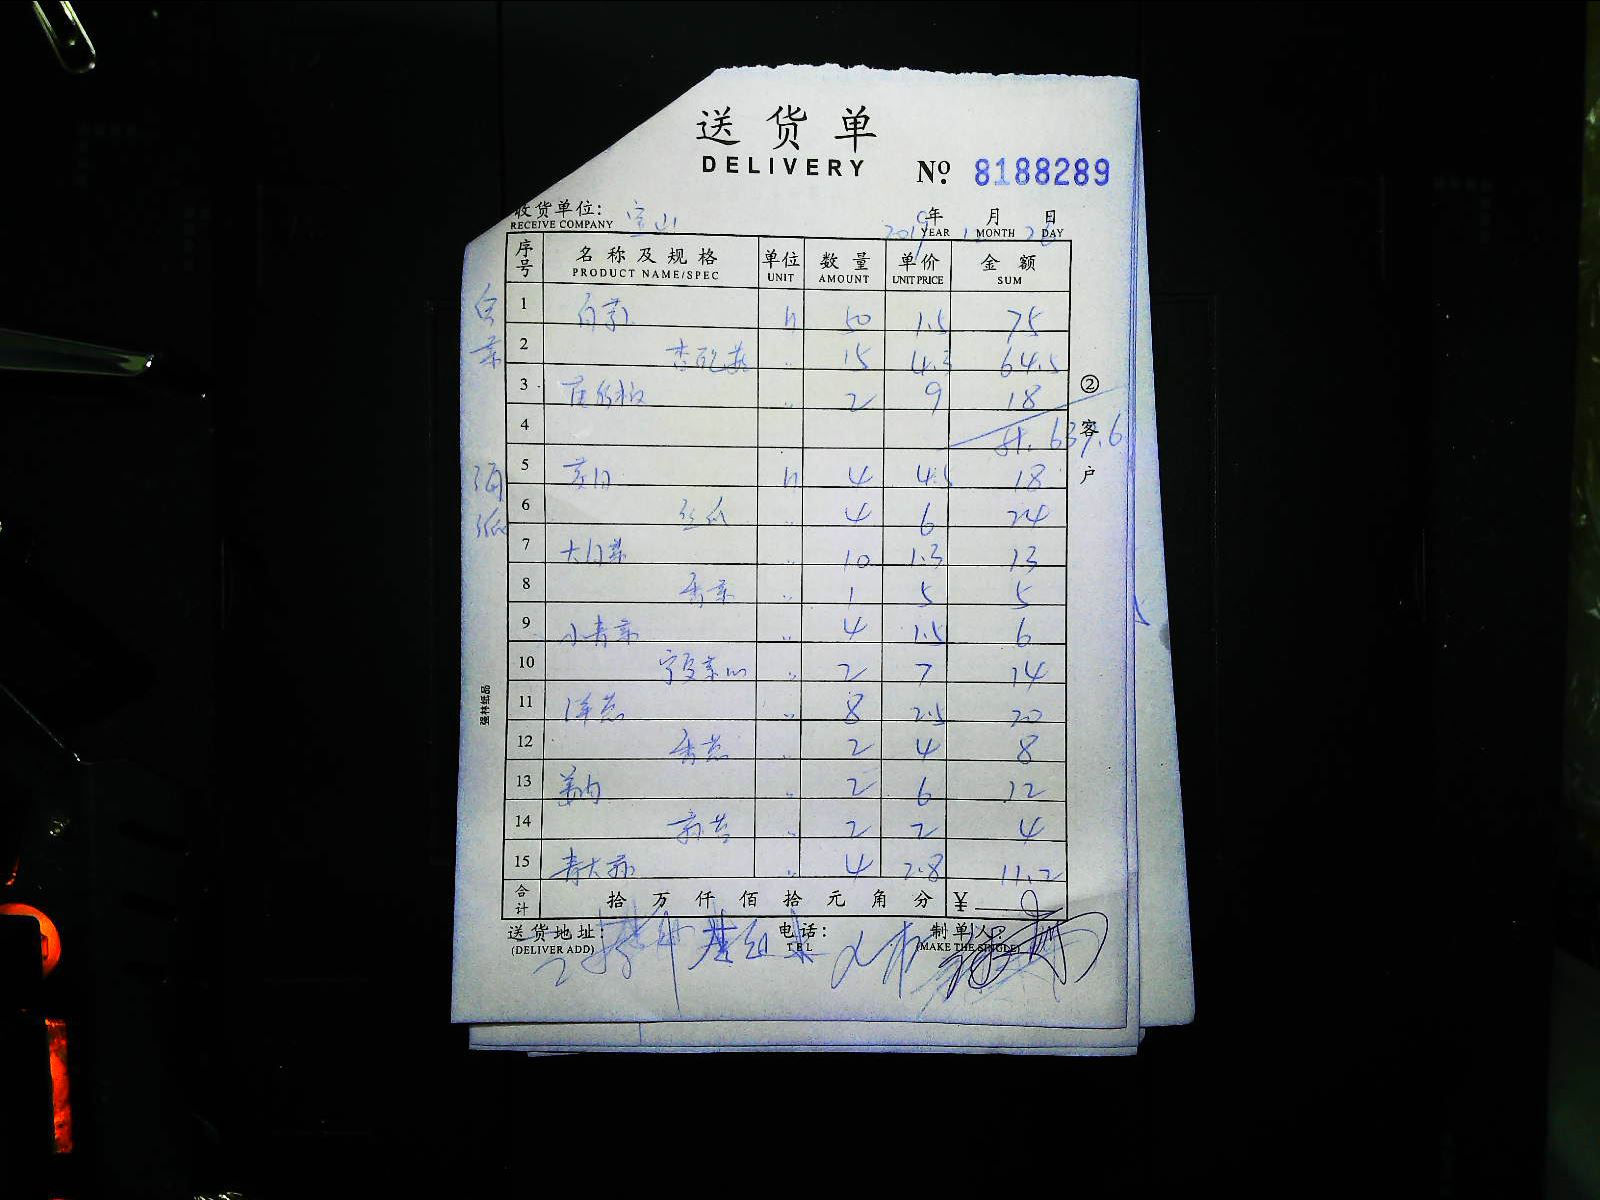 送货单
DELIVERY
No. 8188289
收货单位： 宝山 2019年 月 26日
RECEIVE COMPANY YEAR MONTH DAY
序号 名称及规格 单位 数量 单价 金额
PRODUCT NAME/SPEC UNIT AMOUNT UNIT PRICE SUM
1 50 1.5 75
2 杏鲍菇 15 4.3 64.5
3 2 9 18
4 637.6
5 4 4.5 18
6 丝瓜 4 6 24
7 大白菜 10 1.3 13
8 香菜 1 5 5
9 小青菜 4 1.5 6
10 宁夏菜心 2 7 14
11 洋葱 8 2.5 20
12 香葱 2 4 8
13 2 6 12
14 2 2 4
15 4 2.8 11.2
合计 拾 万 仟 佰 拾 元 角 分 ¥
送货地址： 电话： 制单人：
(DELIVER ADD) TEL (MAKE THE SINGLE)
②客户
强林纸品